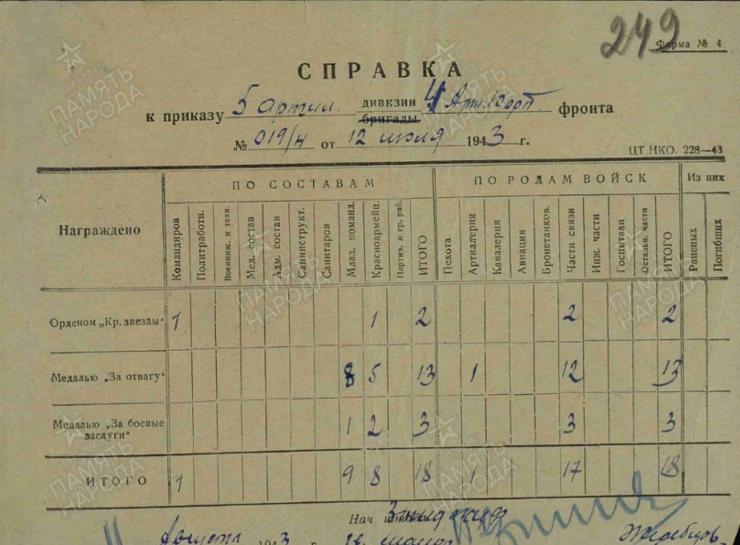 249
Форма № 4
СПРАВКА
к приказу 5 артил. дивизии бригады 4 Арт. Корп. фронта
№ 019/4 от 12 июля 1943 г.
ЦТ НКО. 228—43
Награждено ПО СОСТАВАМ ПО РОДАМ ВОЙСК Из них
Командиров Политработн. Военинж. и техн. Мед. состав Адм. состав Санинструкт. Санитаров Млад. команд. Красноармейц. Партиз. и гр. раб. ИТОГО Пехота Артиллерия Кавалерия Авиация Бронетанков. Части связи Инж. части Госпитали Остальн. части ИТОГО Раненых Погибших
Орденом „Кр. звезды" 1 1 2 2 2
Медалью „За отвагу" 8 5 13 1 12 13
Медалью „За боевые заслуги" 1 2 3 3 3
ИТОГО 1 9 8 18 1 17 18
Нач
Августа 1943 г.
ПАМЯТЬ НАРОДА
ПАМЯТЬ НАРОДА
ПАМЯТЬ НАРОДА
ПАМЯТЬ НАРОДА
ПАМЯТЬ НАРОДА
ПАМЯТЬ НАРОДА
ПАМЯТЬ НАРОДА